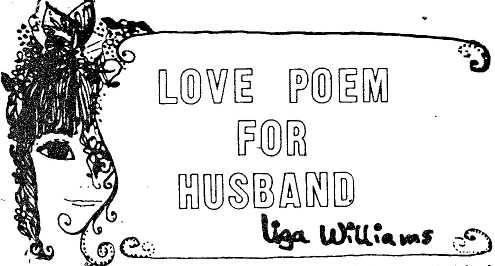 LOVE POEM
FOR
HUSBAND
Liza Williams